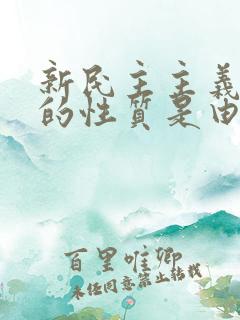 新民主主義
的性質是由
百里唯卿
未经同意禁止转载